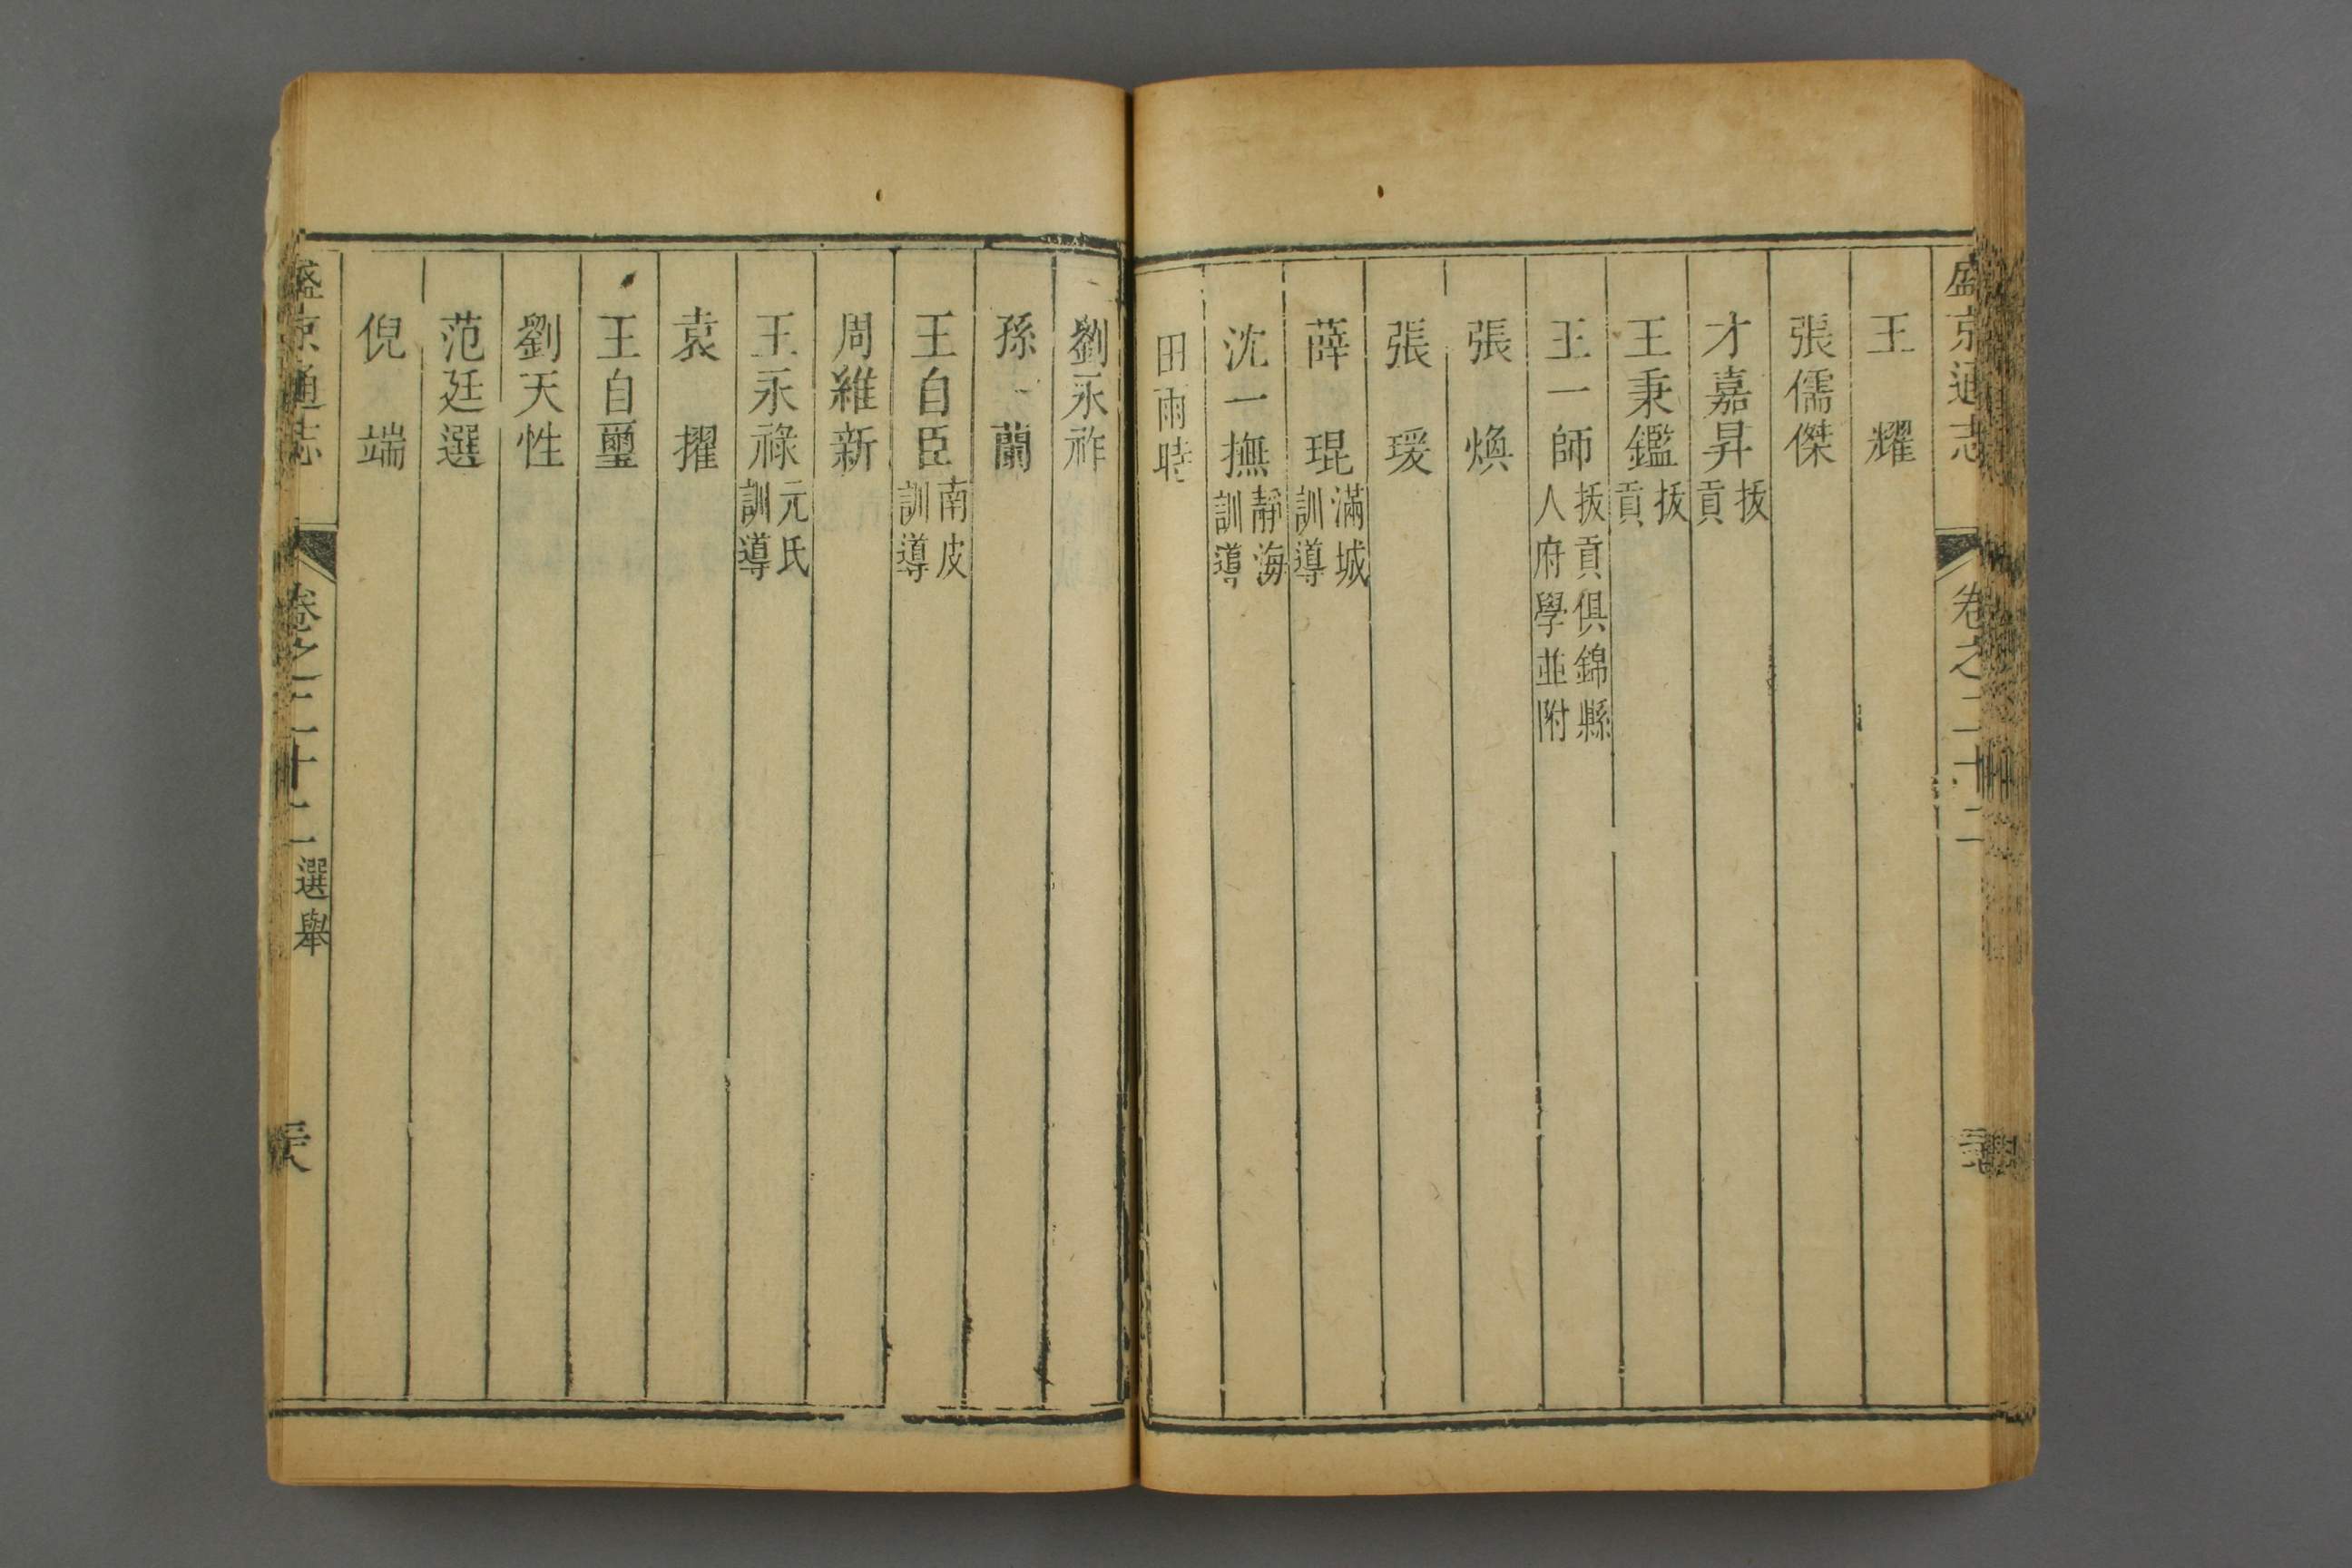 盛京通志 卷之二十二
王 耀
張儒傑
才嘉昇 拔貢
王秉鑑 拔貢
王一師 拔貢俱錦縣人府學並附
張 煥
張 瑗
薛 琨 滿城訓導
沈一撫 靜海訓導
田雨時
劉永祚
孫 蘭
王自臣 南皮訓導
周維新
王永祿 元氏訓導
袁 擢
王自璽
劉天性
范廷選
倪 端
盛京通志 卷之二十二 選舉